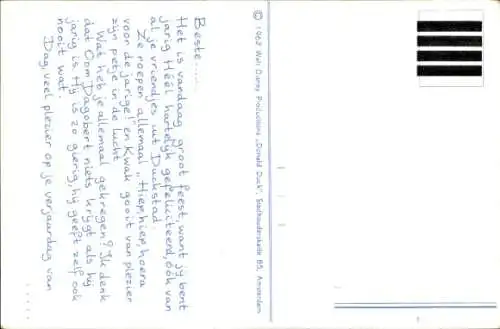 Beste......
Het is vandaag groot feest, want jij bent
jarig. Héél hartelijk gefeliciteerd, óók van
al je vriendjes uit Duckstad.
Ze roepen allemaal "Hiep, hiep, hoera
voor de jarige!" en Kwak gooit van plezier
zijn petje in de lucht.
Wat heb je allemaal gekregen? Ik denk
dat Oom Dagobert niets krijgt als hij
jarig is. Hij is zo gierig, hij geeft zelf ook
nooit wat.
Dag, veel plezier op je verjaardag van
......
© 1962 Walt Disney Productions „Donald Duck", Stadhouderskade 85, Amsterdam